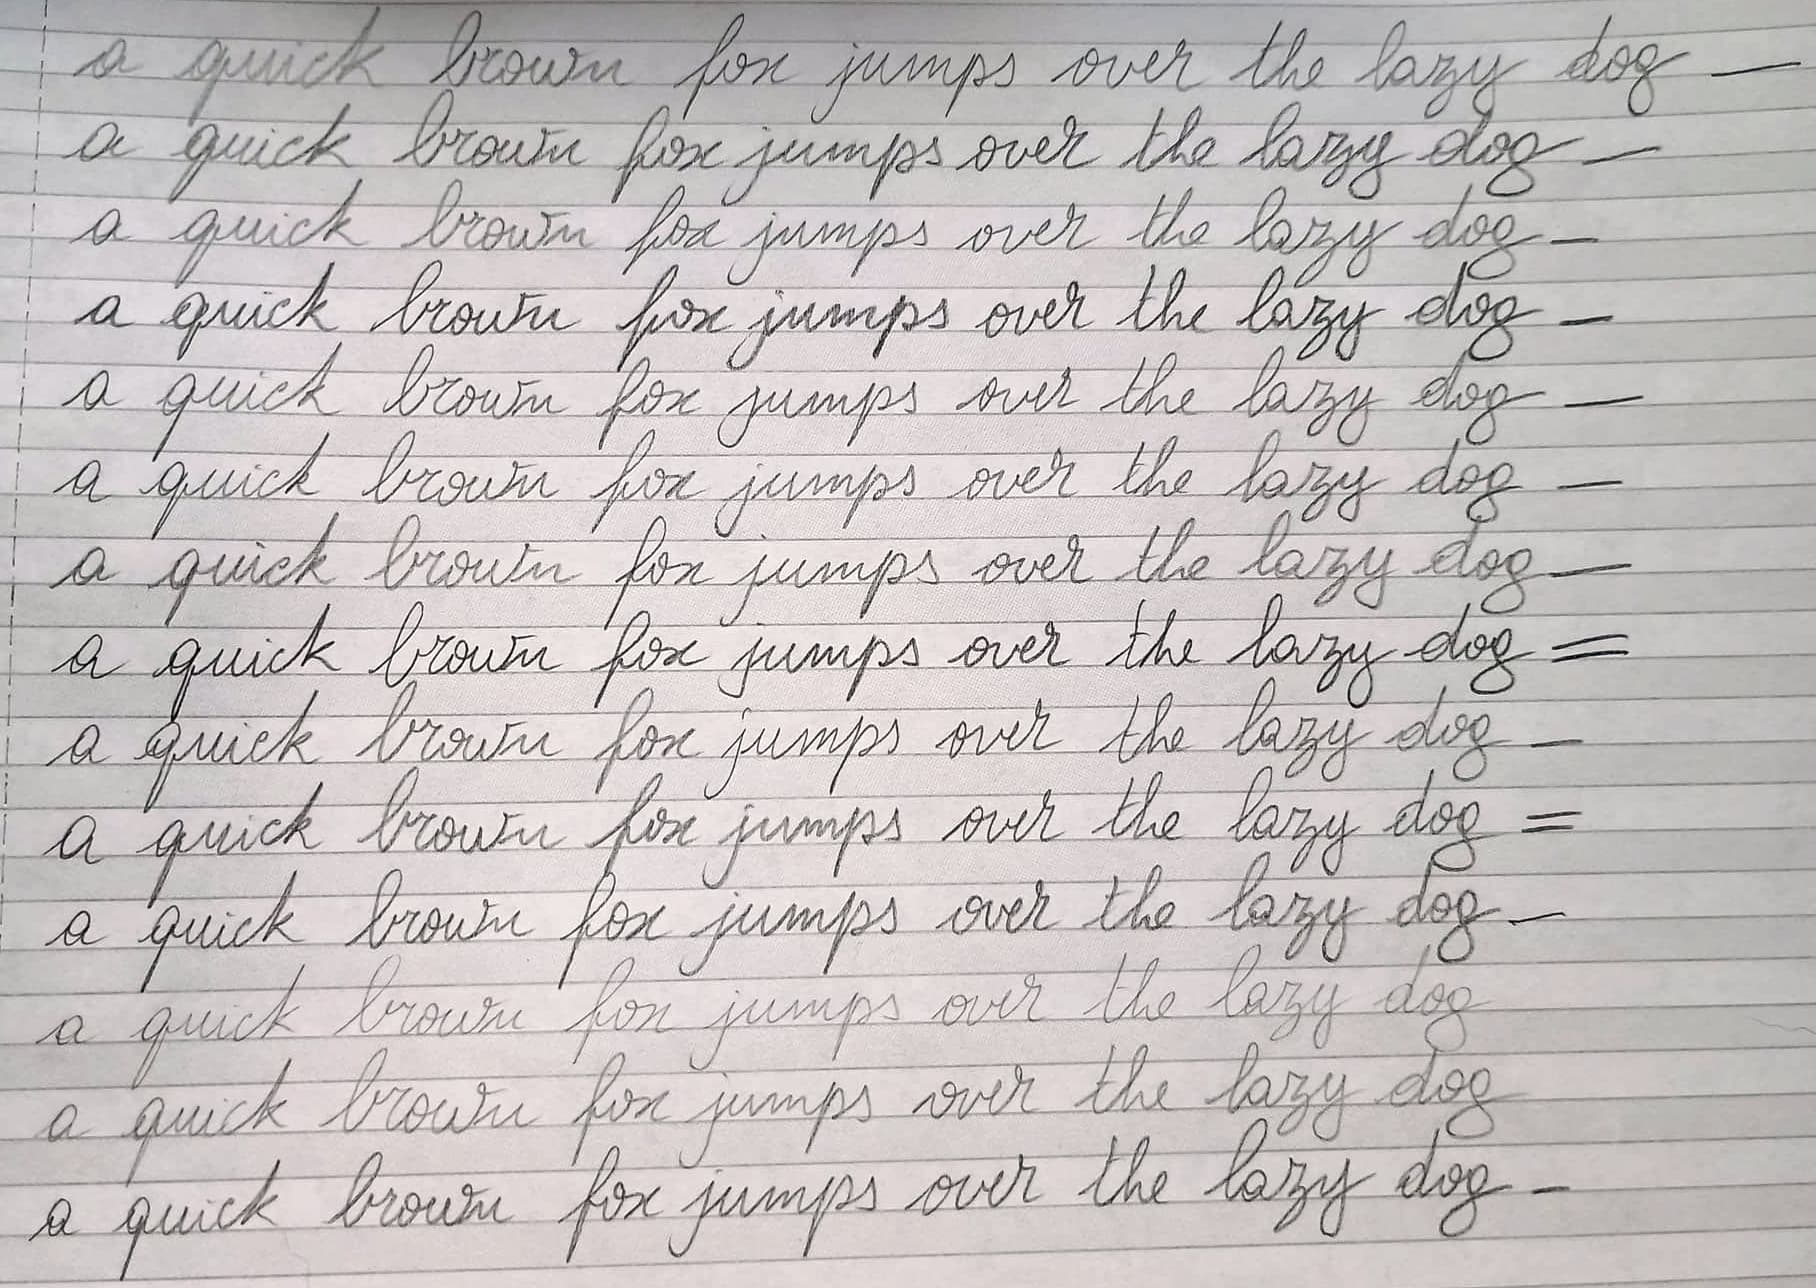 a quick brown fox jumps over the lazy dog —
a quick brown fox jumps over the lazy dog —
a quick brown fox jumps over the lazy dog —
a quick brown fox jumps over the lazy dog —
a quick brown fox jumps over the lazy dog —
a quick brown fox jumps over the lazy dog —
a quick brown fox jumps over the lazy dog —
a quick brown fox jumps over the lazy dog =
a quick brown fox jumps over the lazy dog —
a quick brown fox jumps over the lazy dog =
a quick brown fox jumps over the lazy dog —
a quick brown fox jumps over the lazy dog
a quick brown fox jumps over the lazy dog
a quick brown fox jumps over the lazy dog —